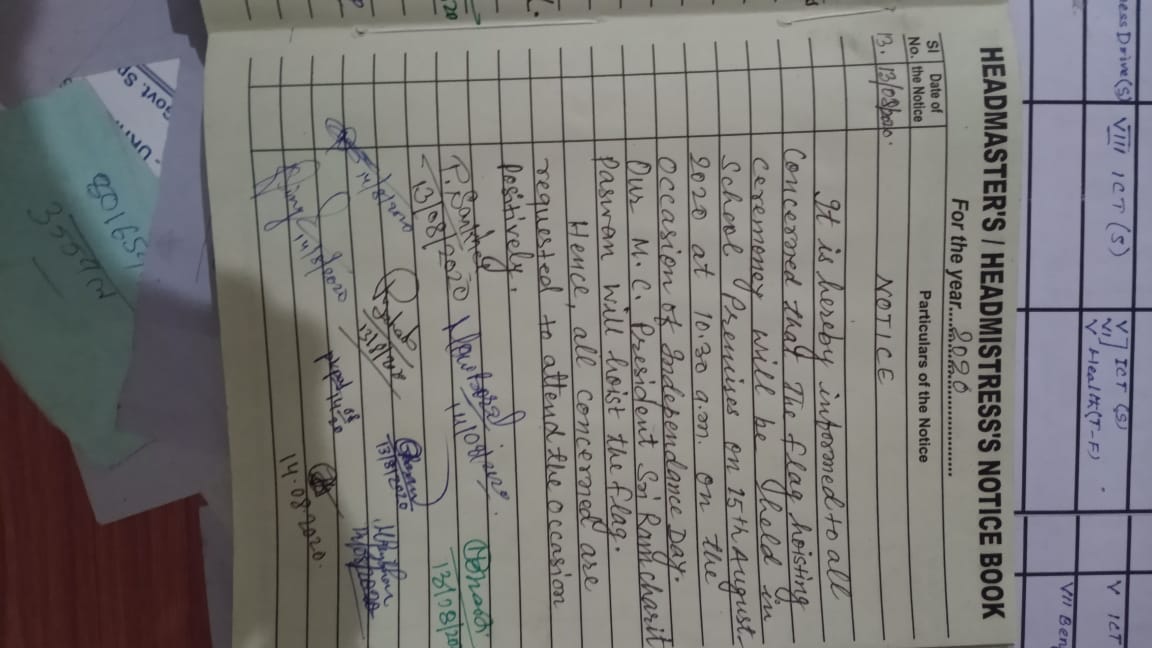 HEADMASTER'S / HEADMISTRESS'S NOTICE BOOK
For the year....2020....
Sl No. Date of the Notice Particulars of the Notice
13. 13/08/2020. NOTICE
It is hereby informed to all
concerned that The flag hoisting
ceremoney will be held in
School Premises on 15th August
2020 at 10.30 a.m. on the
occasion of Independance Day.
Our M.C. President Sri Ramcharit
Paswan will hoist the flag.
Hence, all concerned are
requested to attend the occasion
positively.
13/08/2020
14/08/2020.
13/08/20
14/8/2020
13/8/2020
13/8/2020
14/08/2020
14/8/2020
14.08.2020.
ness Drive(s) VIII ICT (S)
V] ICT (S)
VI]
V Health (T-F)
V ICT
VII Ben
Govt. Sp